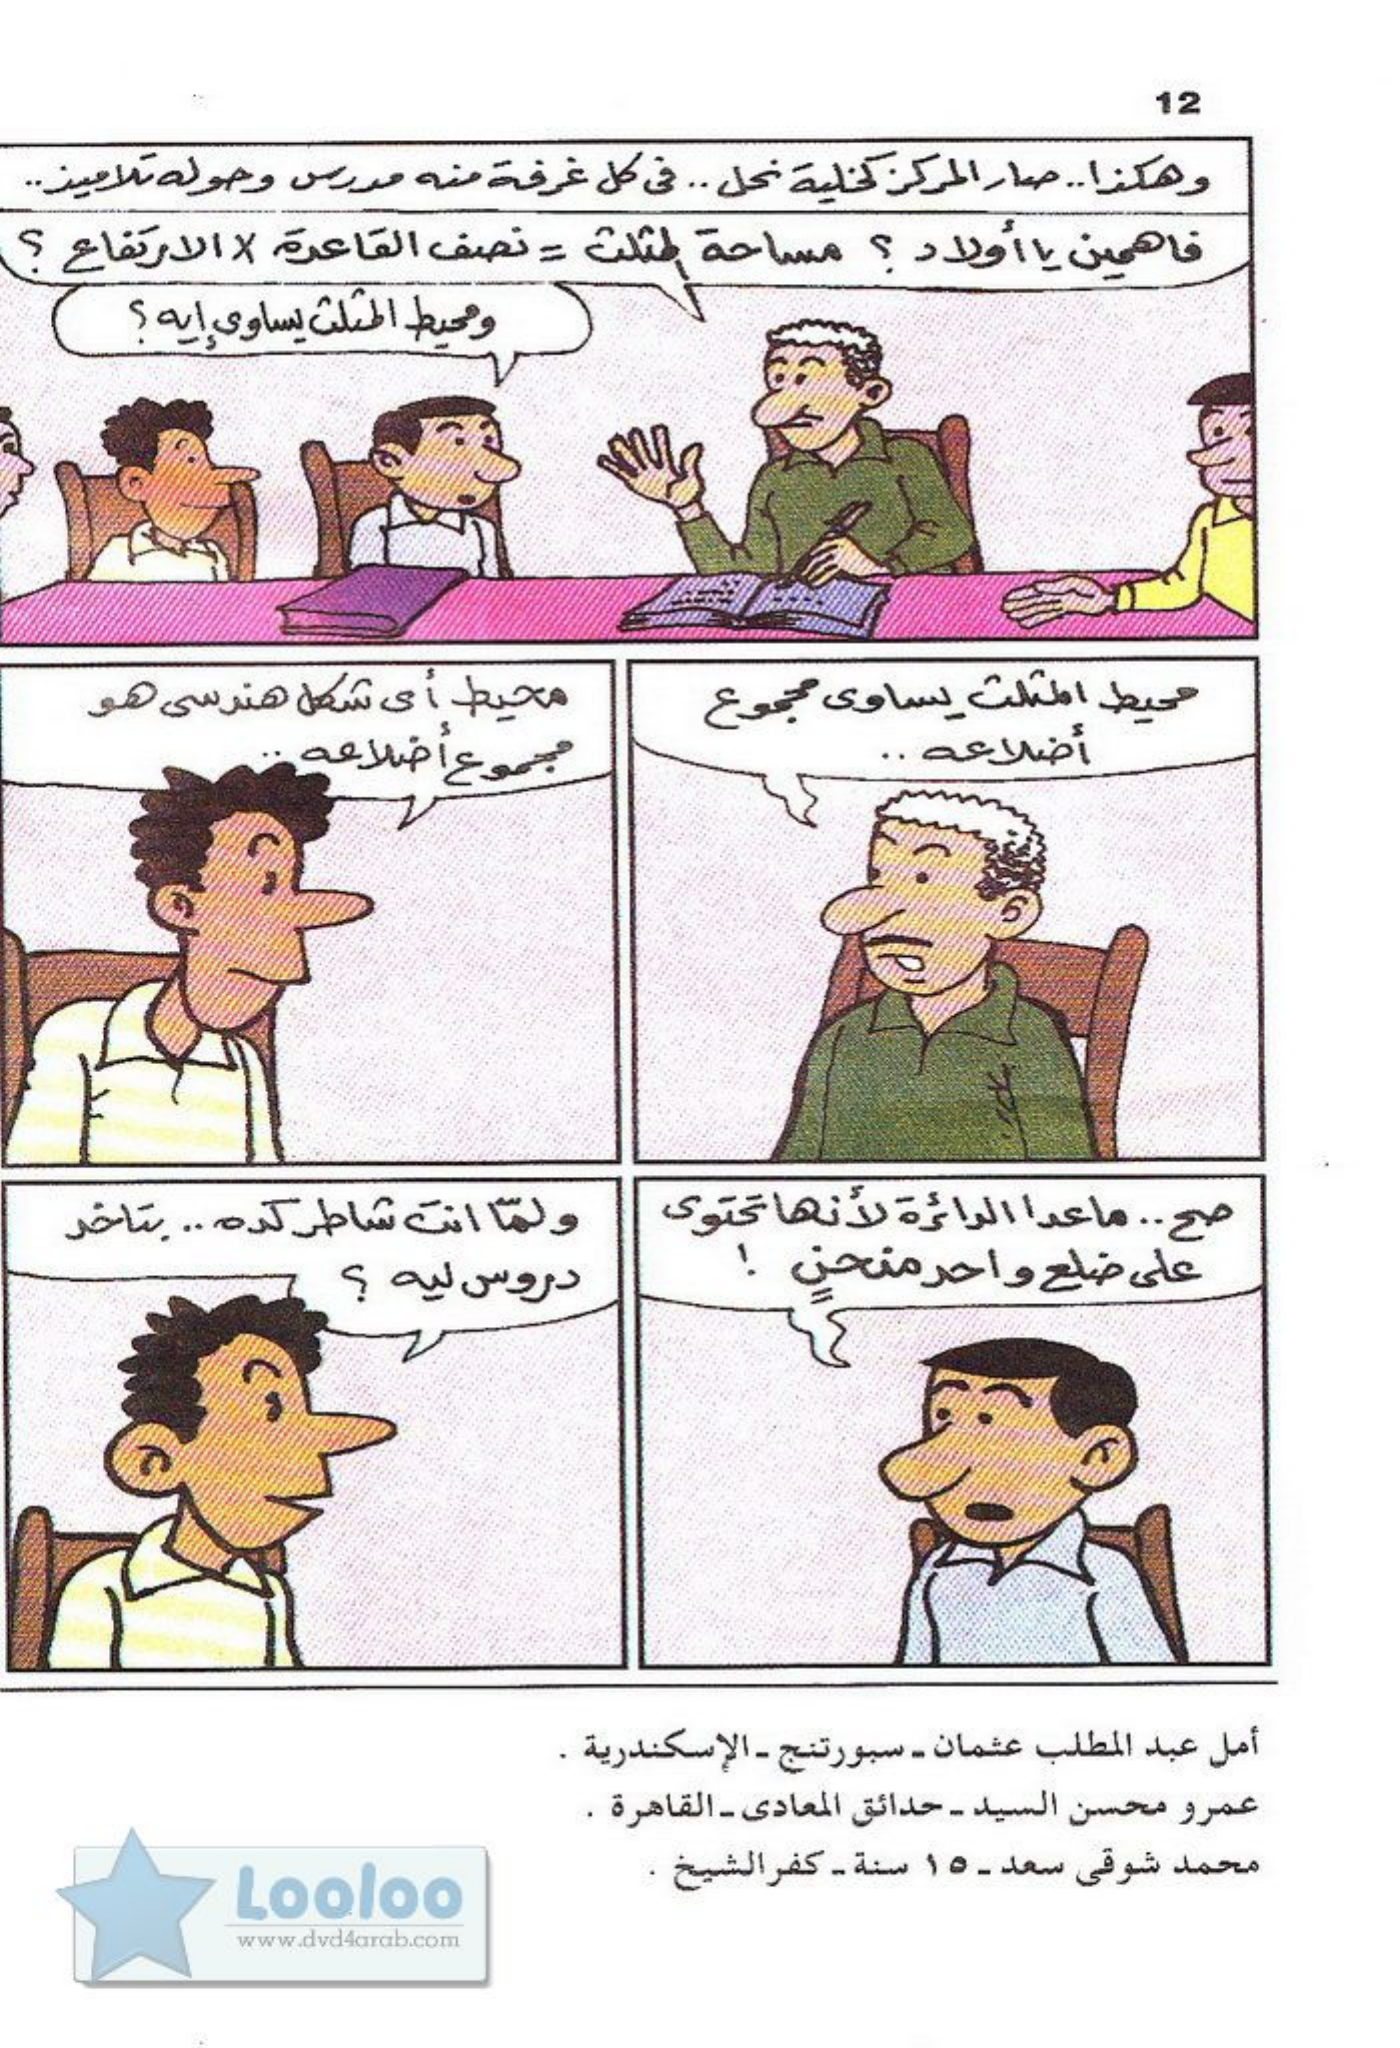 12
وهكذا.. صار المركز كخلية نحل .. فى كل غرفة منه مدرس وحوله تلاميذ..
فاهمين يا أولاد ؟ مساحة المثلث = نصف القاعدة X الارتفاع ؟
ومحيط المثلث يساوى إيه ؟
محيط المثلث يساوى مجموع
أضلاعه ..
محيط أى شكل هندسى هو
مجموع أضلاعه ..
صح .. ماعدا الدائرة لأنها تحتوى
على ضلع واحد منحنٍ !
ولمّا انت شاطر كده .. بتاخد
دروس ليه ؟
أمل عبد المطلب عثمان ـ سبورتنج ـ الإسكندرية .
عمرو محسن السيد ـ حدائق المعادى ـ القاهرة .
محمد شوقى سعد ـ ١٥ سنة ـ كفر الشيخ .
Looloo
www.dvd4arab.com